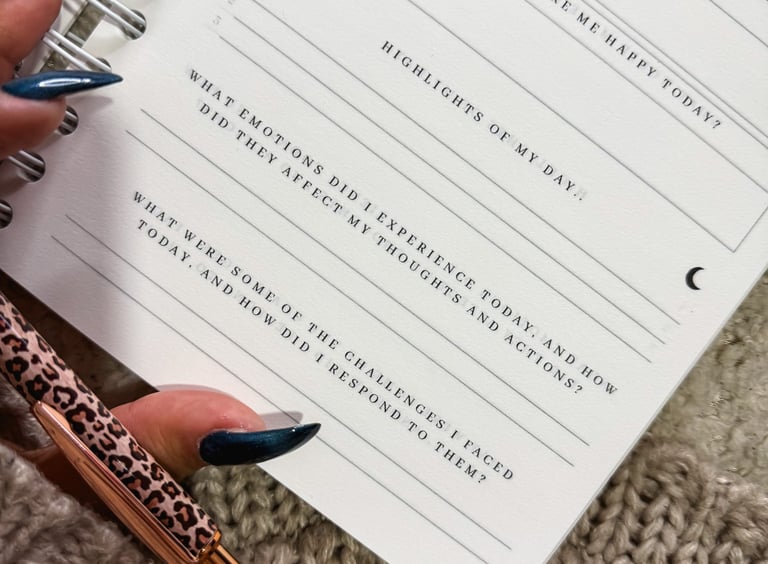 ME HAPPY TODAY?
HIGHLIGHTS OF MY DAY!
WHAT EMOTIONS DID I EXPERIENCE TODAY, AND HOW
DID THEY AFFECT MY THOUGHTS AND ACTIONS?
WHAT WERE SOME OF THE CHALLENGES I FACED
TODAY, AND HOW DID I RESPOND TO THEM?